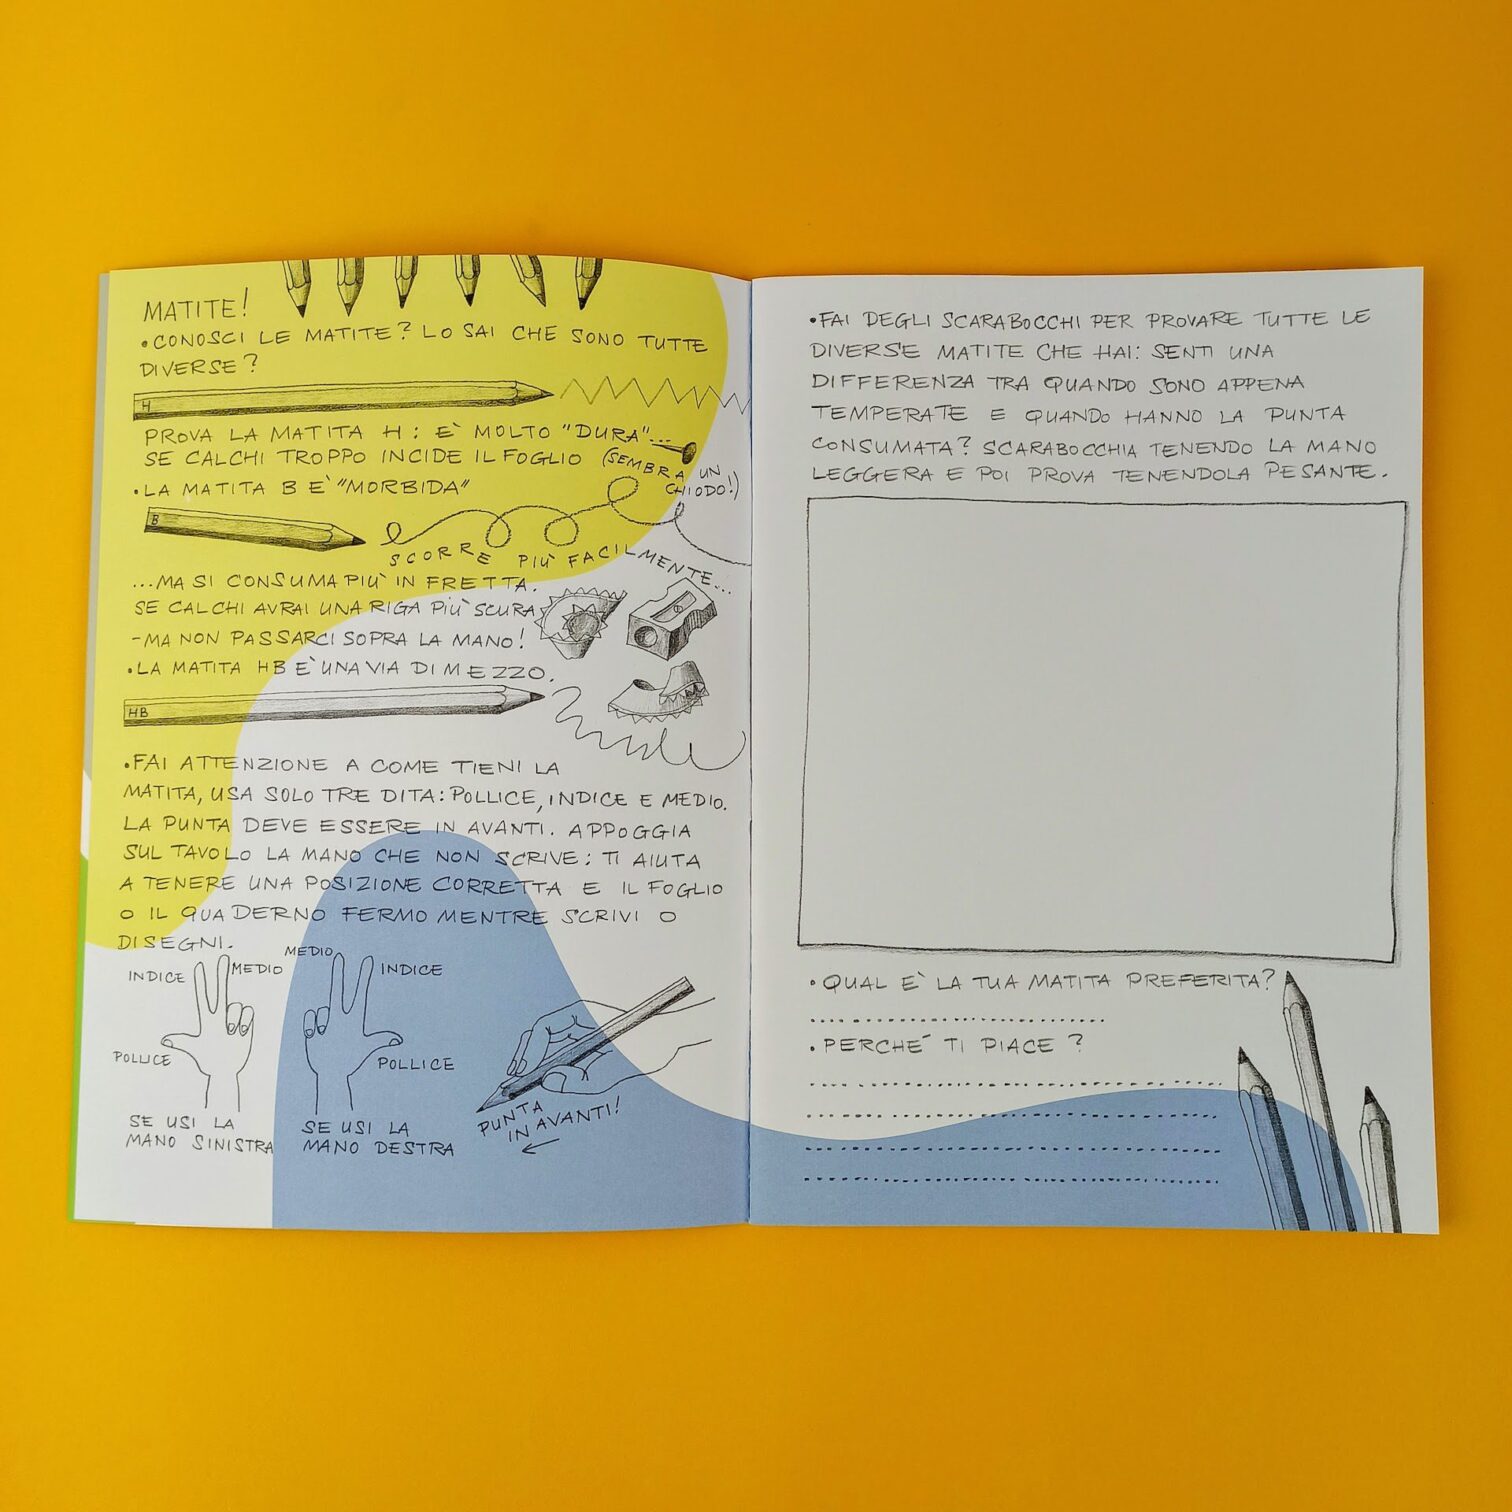 MATITE!
•CONOSCI LE MATITE? LO SAI CHE SONO TUTTE
DIVERSE?
H
PROVA LA MATITA H: E' MOLTO "DURA"...
SE CALCHI TROPPO INCIDE IL FOGLIO (SEMBRA UN
CHIODO!)
•LA MATITA B E' "MORBIDA"
B
SCORRE PIU' FACILMENTE...
...MA SI CONSUMA PIU' IN FRETTA.
SE CALCHI AVRAI UNA RIGA PIU' SCURA
-MA NON PASSARCI SOPRA LA MANO!
•LA MATITA HB E' UNA VIA DI MEZZO.
HB
•FAI ATTENZIONE A COME TIENI LA
MATITA, USA SOLO TRE DITA: POLLICE, INDICE E MEDIO.
LA PUNTA DEVE ESSERE IN AVANTI. APPOGGIA
SUL TAVOLO LA MANO CHE NON SCRIVE: TI AIUTA
A TENERE UNA POSIZIONE CORRETTA E IL FOGLIO
O IL QUADERNO FERMO MENTRE SCRIVI O
DISEGNI.
INDICE MEDIO
POLLICE
SE USI LA
MANO SINISTRA
MEDIO INDICE
POLLICE
SE USI LA
MANO DESTRA
PUNTA
IN AVANTI!
•FAI DEGLI SCARABOCCHI PER PROVARE TUTTE LE
DIVERSE MATITE CHE HAI: SENTI UNA
DIFFERENZA TRA QUANDO SONO APPENA
TEMPERATE E QUANDO HANNO LA PUNTA
CONSUMATA? SCARABOCCHIA TENENDO LA MANO
LEGGERA E POI PROVA TENENDOLA PESANTE.
•QUAL E' LA TUA MATITA PREFERITA?
•PERCHE' TI PIACE?